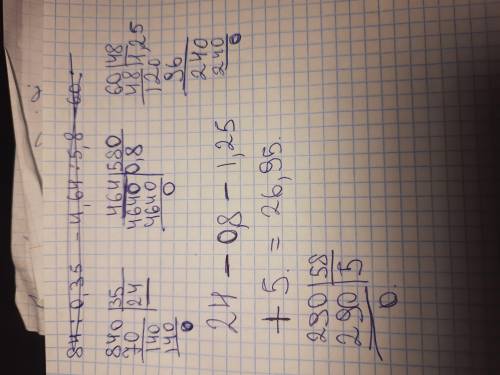 84 : 0,35 - 4,64 : 5,8 - 60 :
840 35
70 24
140
140
0
464 580
4640 0,8
4640
0
60 48
48 1,25
120
96
240
240
0
24 - 08 - 1,25
+ 5. = 26,95.
290 58
290 5
0.